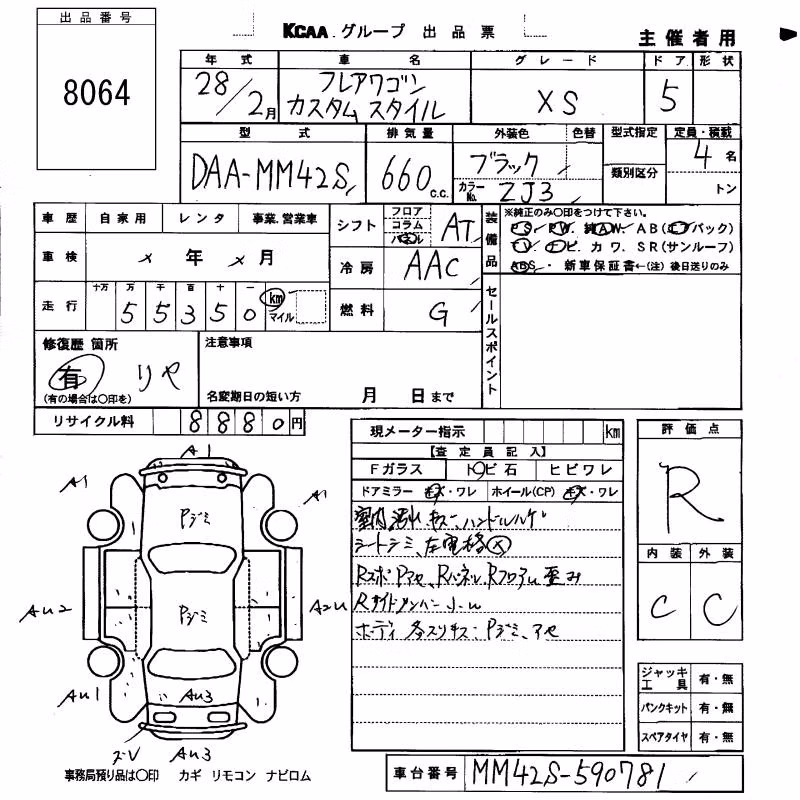 出品番号
8064
KCAA グループ 出品票
主催者用
年式 車名 グレード ドア 形状
28/2月 フレアワゴン カスタムスタイル XS 5
型式 排気量 外装色 色替 型式指定 定員・積載
DAA-MM42S 660 c.c. ブラック 類別区分 4名
カラーNo. ZJ3 トン
車歴 自家用 レンタ 事業.営業車
シフト フロア コラム パネル AT
装備品
※純正のみ○印をつけて下さい。
PS. PW. 純AW AB(エアバック)
TV. ナビ. カワ. SR(サンルーフ)
ABS・ 新車保証書←(注) 後日送りのみ
車検 × 年 × 月
冷房 AAC
走行 十万 万 千 百 十 一
55350 km マイル
燃料 G
セールスポイント
修復歴 箇所
有 リヤ
(有の場合は○印を)
注意事項
名変期日の短い方 月 日まで
リサイクル料 8880円
現メーター指示 km
評価点
R
【査定員記入】
Fガラス トビ石 ヒビワレ
ドアミラー キズ・ワレ ホイール(CP) キズ・ワレ
室内汚れ キズ、ハンドルハゲ
シートシミ、左電格×
Rスポ Pアセ、Rパネル、Rフロアu 歪み
Rサイドメンバー
ボディ 各スリキズ Pジミ、アセ
内装 外装
C C
A1
A1
A1
Pジミ
Au2
A2u
Pジミ
Au1
Au3
Au3
ズV
ジャッキ工具 有・無
パンクキット 有・無
スペアタイヤ 有・無
事務局預り品は○印 カギ リモコン ナビロム
車台番号 MM42S-590781